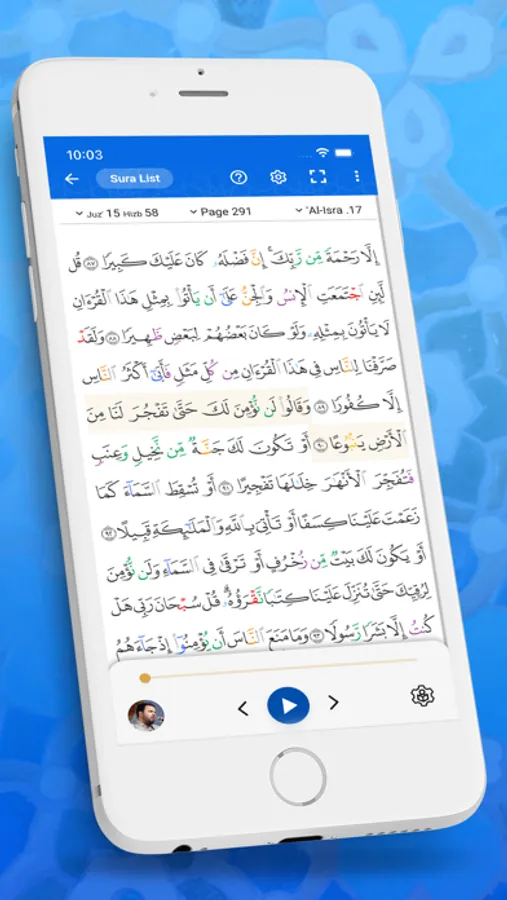 10:03
Sura List
Juz' 15 Hizb 58
Page 291
Al-Isra .17
إِلَّا رَحْمَةً مِّن رَّبِّكَ ۚ إِنَّ فَضْلَهُۥ كَانَ عَلَيْكَ كَبِيرًا ﴿٨٧﴾ قُل
لَّئِنِ ٱجْتَمَعَتِ ٱلْإِنسُ وَٱلْجِنُّ عَلَىٰٓ أَن يَأْتُوا۟ بِمِثْلِ هَٰذَا ٱلْقُرْءَانِ
لَا يَأْتُونَ بِمِثْلِهِۦ وَلَوْ كَانَ بَعْضُهُمْ لِبَعْضٍ ظَهِيرًا ﴿٨٨﴾ وَلَقَدْ
صَرَّفْنَا لِلنَّاسِ فِى هَٰذَا ٱلْقُرْءَانِ مِن كُلِّ مَثَلٍ فَأَبَىٰٓ أَكْثَرُ ٱلنَّاسِ
إِلَّا كُفُورًا ﴿٨٩﴾ وَقَالُوا۟ لَن نُّؤْمِنَ لَكَ حَتَّىٰ تَفْجُرَ لَنَا مِنَ
ٱلْأَرْضِ يَنۢبُوعًا ﴿٩٠﴾ أَوْ تَكُونَ لَكَ جَنَّةٌ مِّن نَّخِيلٍ وَعِنَبٍ
فَتُفَجِّرَ ٱلْأَنْهَٰرَ خِلَٰلَهَا تَفْجِيرًا ﴿٩١﴾ أَوْ تُسْقِطَ ٱلسَّمَآءَ كَمَا
زَعَمْتَ عَلَيْنَا كِسَفًا أَوْ تَأْتِىَ بِٱللَّهِ وَٱلْمَلَٰٓئِكَةِ قَبِيلًا ﴿٩٢﴾
أَوْ يَكُونَ لَكَ بَيْتٌ مِّن زُخْرُفٍ أَوْ تَرْقَىٰ فِى ٱلسَّمَآءِ وَلَن نُّؤْمِنَ
لِرُقِيِّكَ حَتَّىٰ تُنَزِّلَ عَلَيْنَا كِتَٰبًا نَّقْرَؤُهُۥ ۗ قُلْ سُبْحَانَ رَبِّى هَلْ
كُنتُ إِلَّا بَشَرًا رَّسُولًا ﴿٩٣﴾ وَمَا مَنَعَ ٱلنَّاسَ أَن يُؤْمِنُوٓا۟ إِذْ جَآءَهُمُ